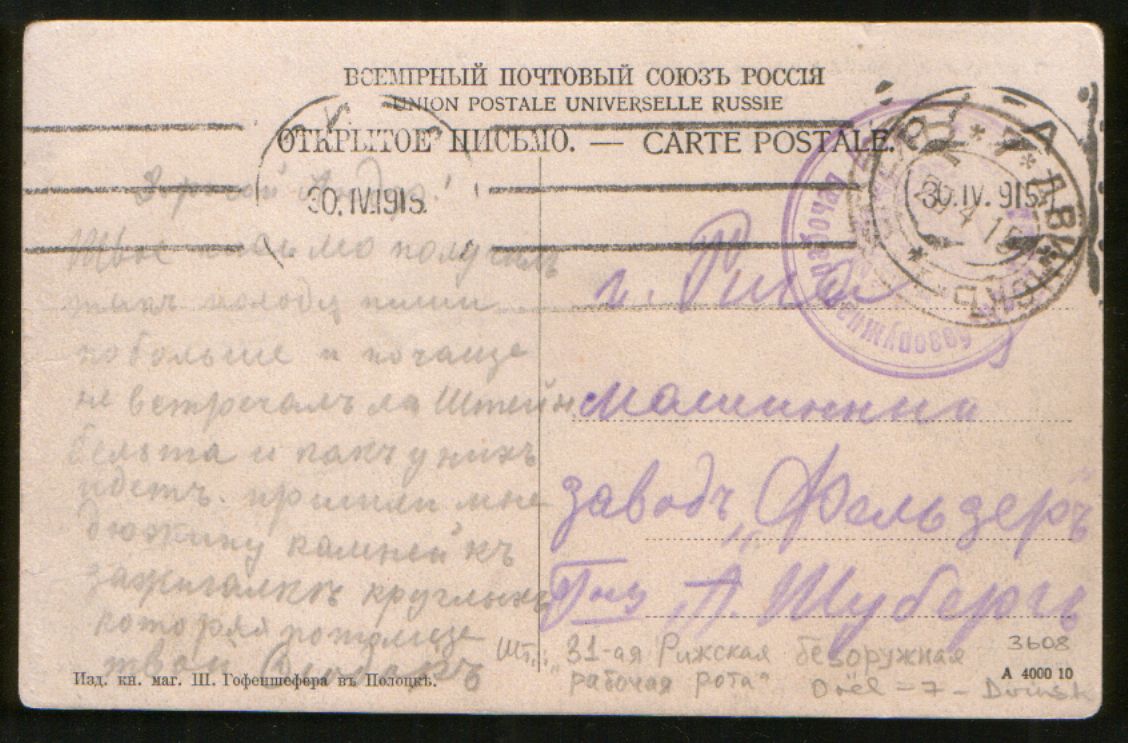 ВСЕМІРНЫЙ ПОЧТОВЫЙ СОЮЗЪ РОССІЯ
UNION POSTALE UNIVERSELLE RUSSIE
ОТКРЫТОЕ ПИСЬМО. — CARTE POSTALE.
30.IV.1915
30.IV.915
* 7 * ДВИНСКЪ *
Твое писмо получилъ
побольше и почаще
не встречалъ ла Штейн
бельта и какъ у нихъ
идетъ. пришли мне
дюжину камней къ
зажигалкѣ круглыхъ
которыя потолще
твой
г. Рига
машинний
заводъ „Фельдеръ"
А. Шубертъ
безоружная
рабочая
Шт.: "31-ая Рижская безоружная
рабочая рота"
Орёл – 7 – Dvinsk
3608
Изд. кн. маг. Ш. Гофеншефера въ Полоцкѣ.
А 4000 10